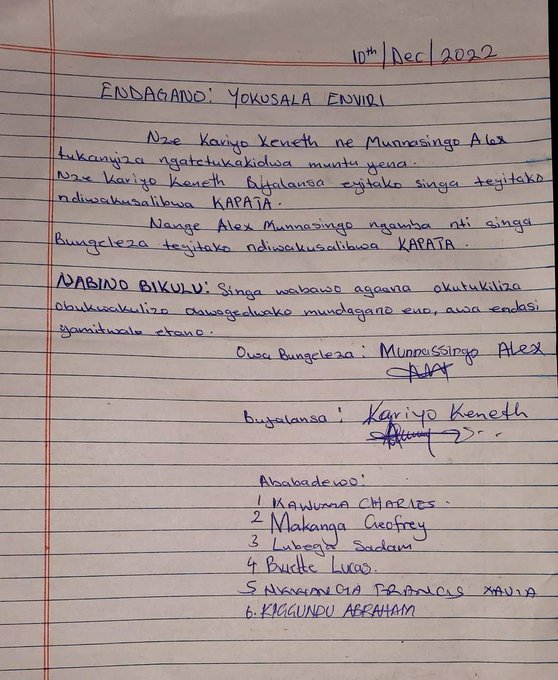 10th/Dec/2022
ENDAGANO: YOKUSALA ENVIRI
Nze Kariyo Keneth ne Munnasingo Alex
tukanyiza ngatetukakidwa muntu yena.
Nze Kariyo Keneth Bufalansa eyitako singa teyitako
ndiwakusalibwa KAPATA.
Nange Alex Munnasingo ngamba nti singa
Bungeleza teyitako ndiwakusalibwa KAPATA.
NABINO BIKULU: Singa wabawo agaana okutukiliza
obukwakulizo obwogedwako mundagano eno, awa endasi
yamitwalo etano.
Owa Bungeleza: Munnassingo Alex
Bufalansa: Kariyo Keneth
Ababadewo:
1 KAWUMA CHARLES.
2 Makanga Geofrey
3 Lubega Sadam
4 Lucas.
5 FRANCIS XAVIA
6. KIGGUNDU ABRAHAM